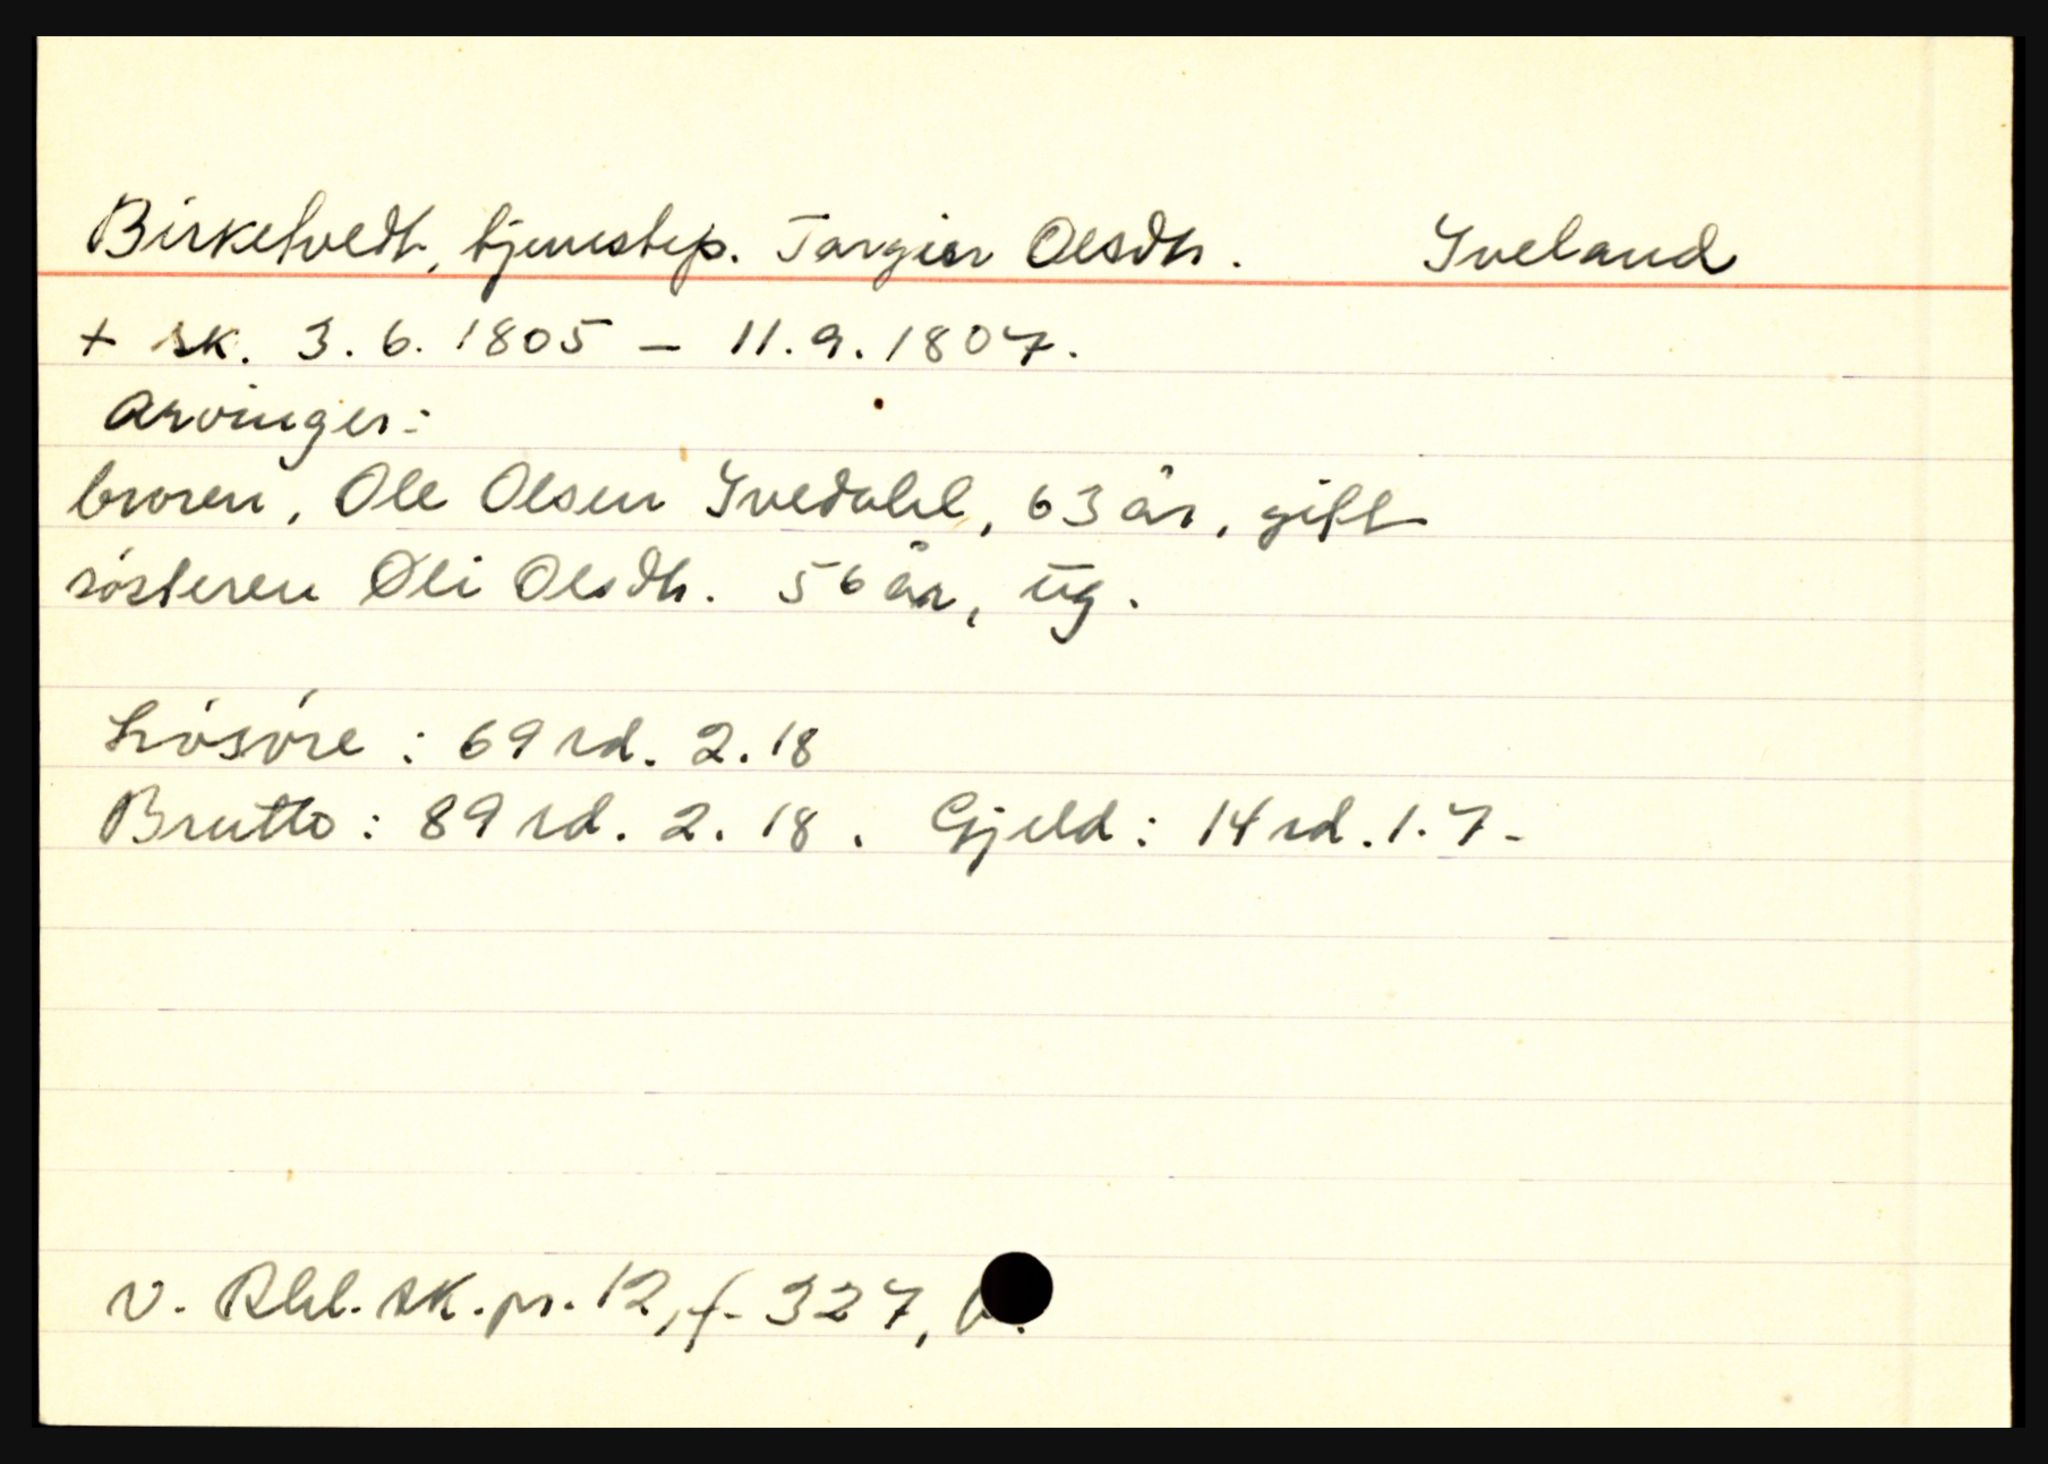 Birketvedt, tjenestep. Torgier Olsdtr. Iveland
+ sk. 3.6.1805 – 11.9.1807.
Arvinger:
broren, Ole Olsen Ivedahl, 63 år, gift
søsteren Øli Olsdtr. 56 år, ug.
Løsøre: 69 rd. 2.18
Brutto: 89 rd. 2.18. Gjeld: 14 rd. 1.7-
v. Rbl. sk.pr. 12, f. 327, b.